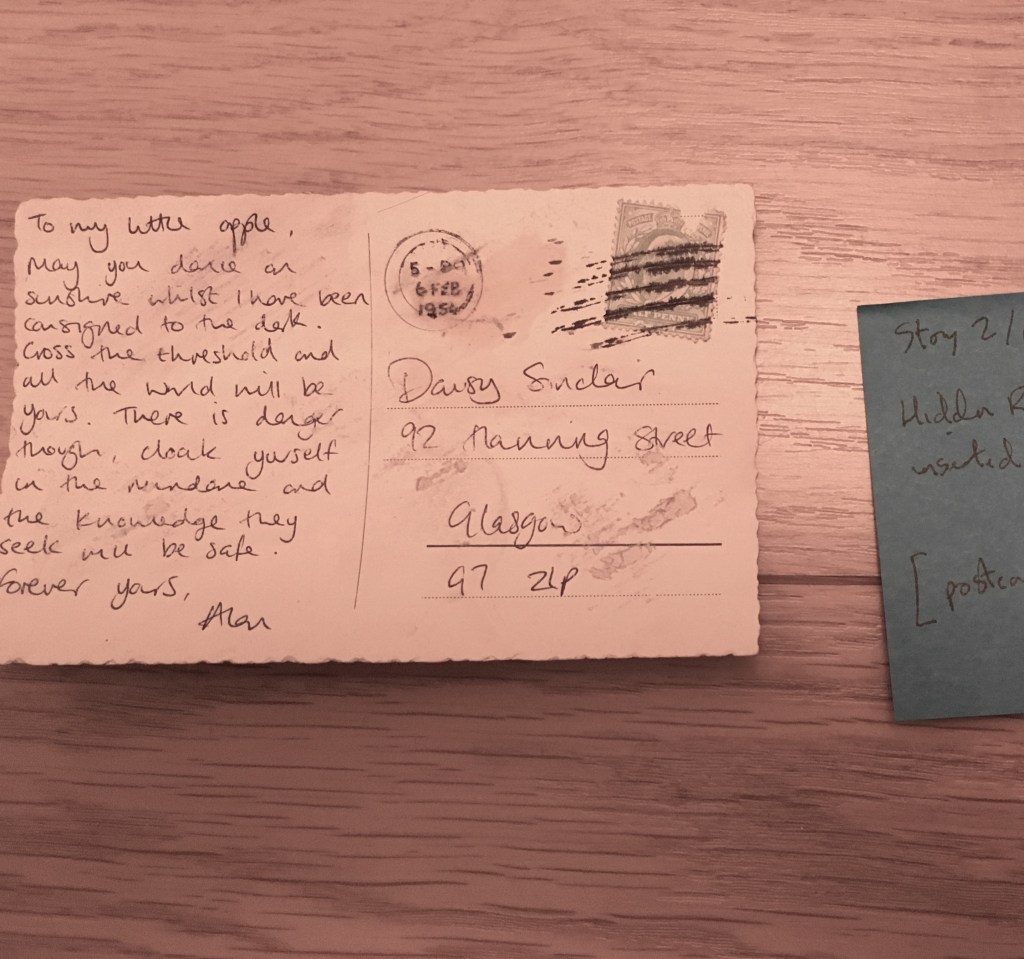 To my little apple,
May you dance in
sunshine whilst I have been
consigned to the dark.
Cross the threshold and
all the world will be
yours. There is danger
though, cloak yourself
in the mundane and
the knowledge they
seek will be safe.
Forever yours,
Alan
6 FEB
Daisy Sinclair
92 Manning Street
Glasgow
G7 2LP
Story 2/
Hidden
inserted
[